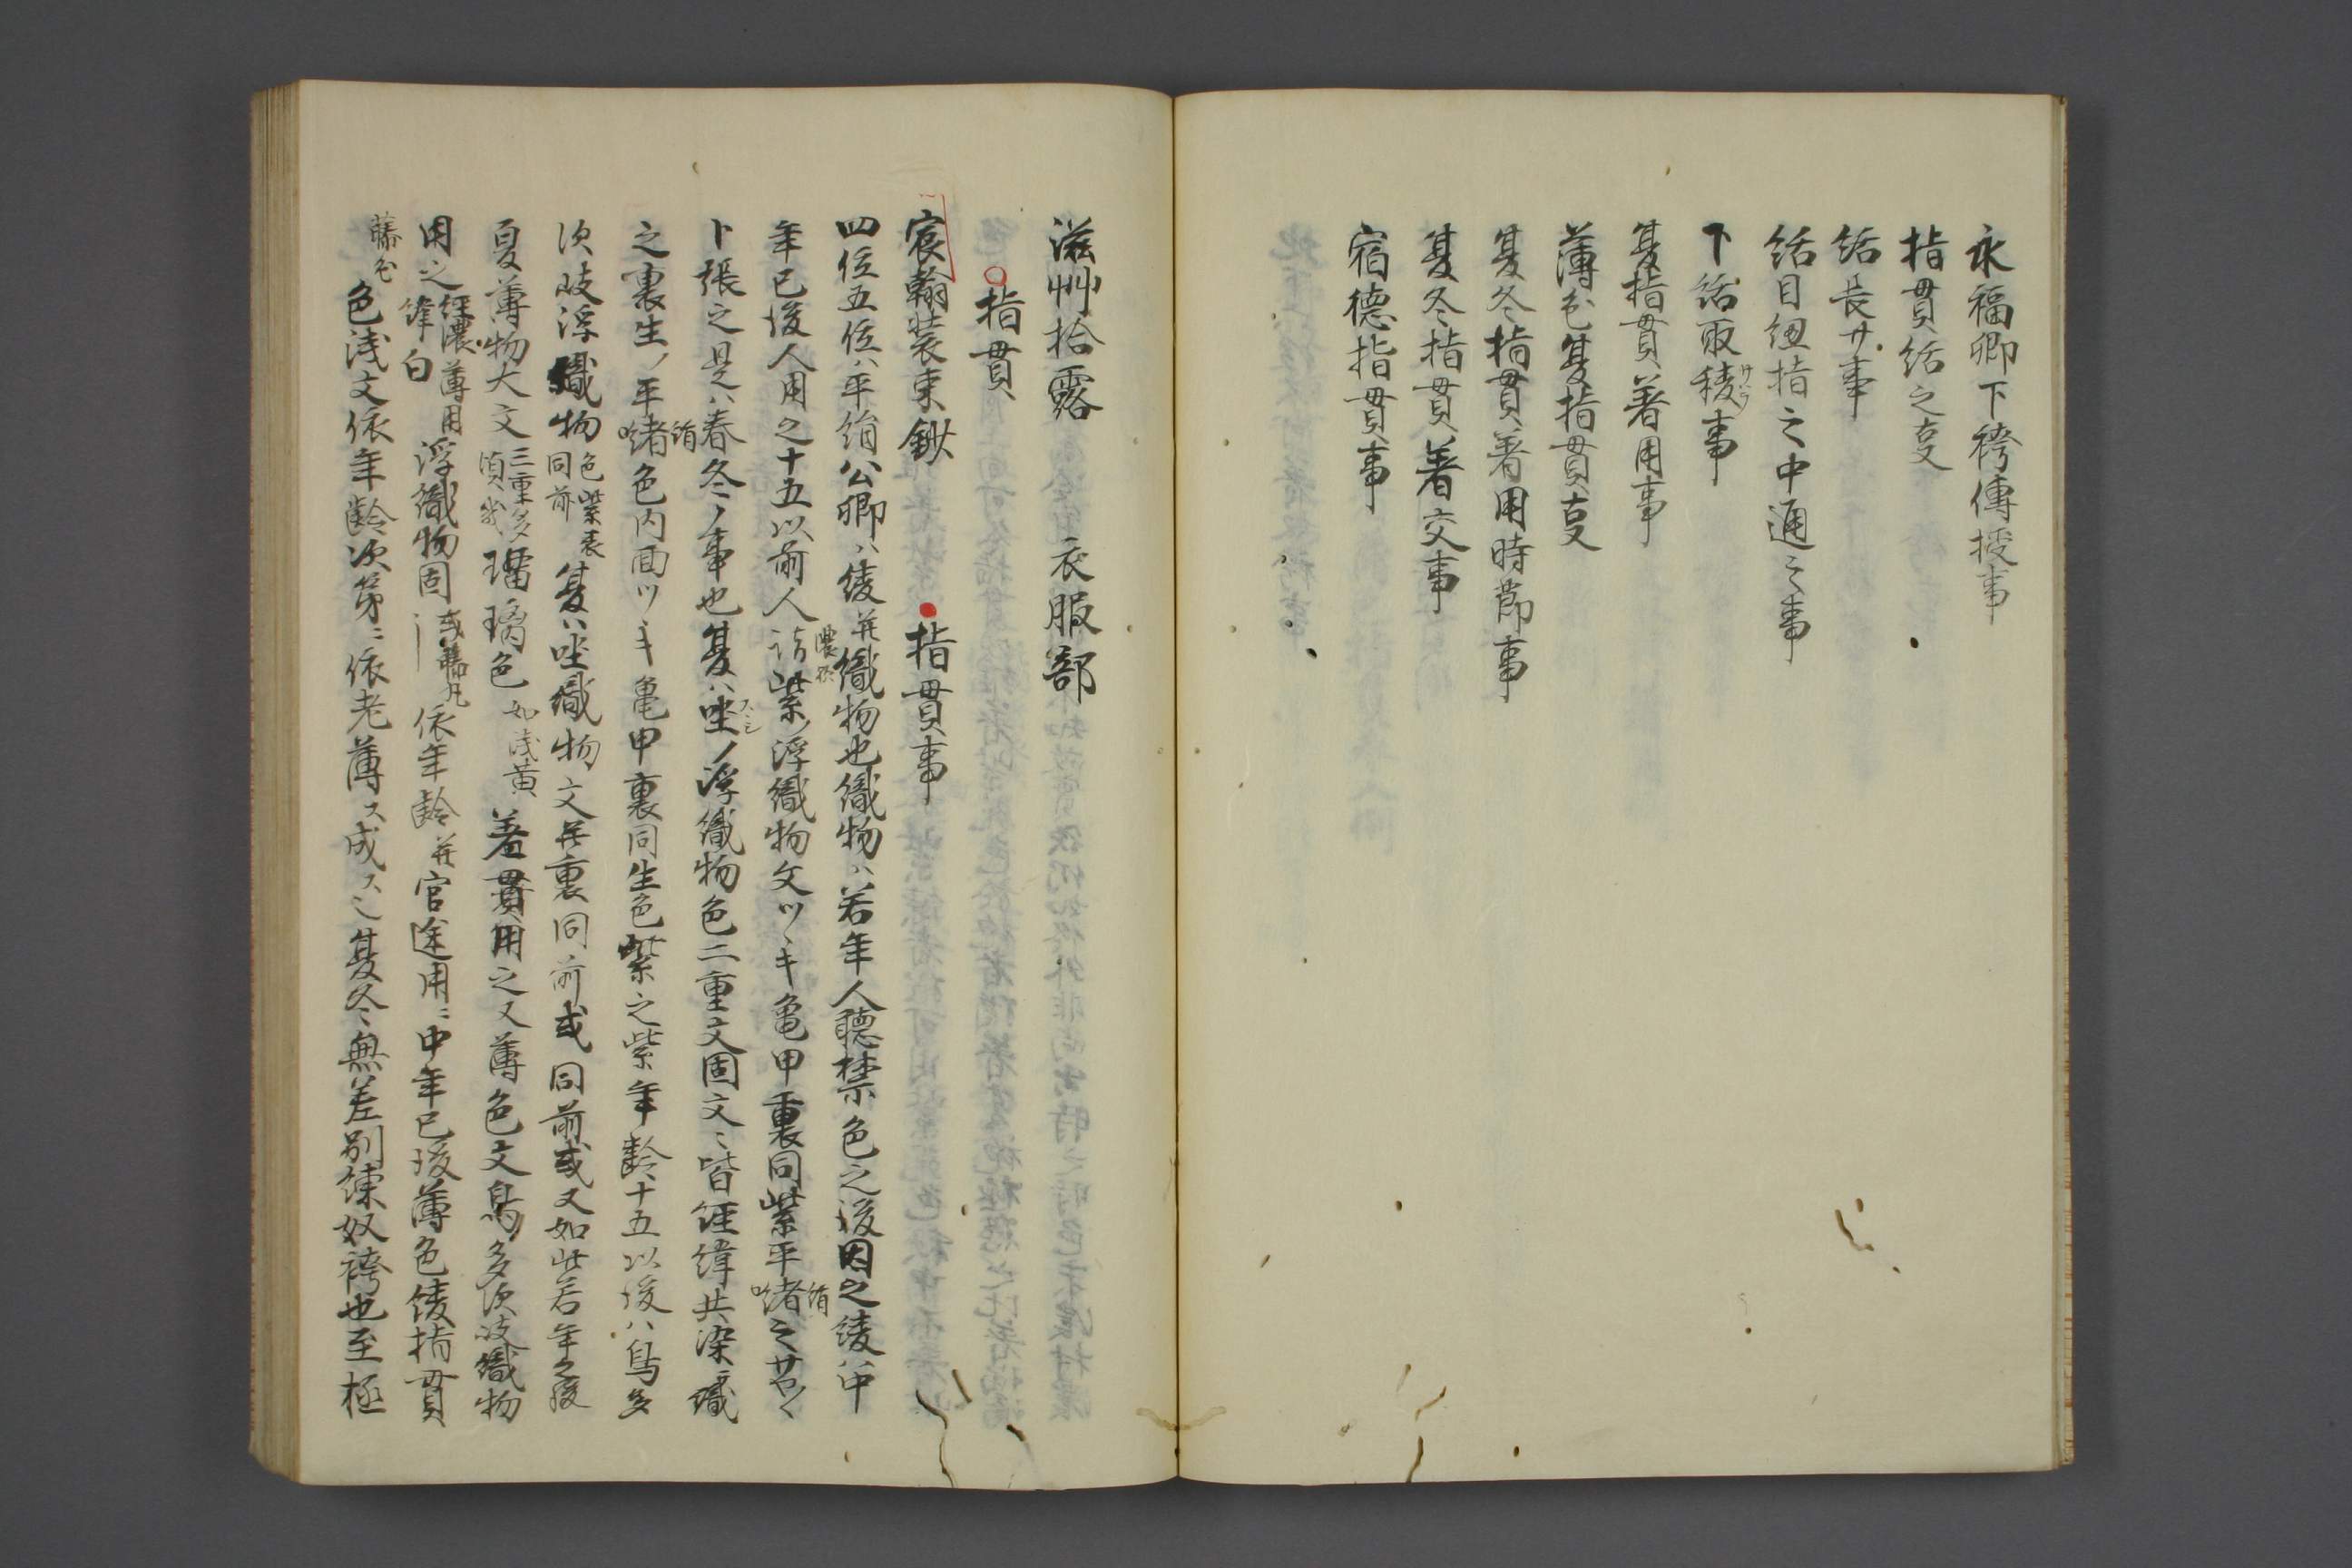 永福卿下袴傳授事
指貫括之事
括長サ事
括目紐指之中通之事
下括取稜事
夏指貫著用事
薄色夏指貫事
夏冬指貫著用時節事
夏冬指貫著交事
宿德指貫事
滋艸拾露 衣服部
指貫
宸翰装束鈔 指貫事
四位五位ハ平絹公卿ハ綾并織物也織物ハ若年人聴禁色之後因之綾ハ中
年已後人用之十五以前人 濃 紫ノ浮織物文ツヽキ亀甲裏同紫平
ト張之是ハ春冬ノ事也夏ハ生ノ浮織物色二重文固文ニ皆経緯共染織
之裏生ノ平 絹 色内面ツヽキ亀甲裏同生色紫之紫年齢十五以後ハ鳥多
須岐浮織物 色紫表同前 夏ハ生織物文并裏同前或同前或又如此若年之後
夏薄物大文 三重多 瑠璃色 如浅黄 著貫用之又薄色文鳥多須岐織物
用之 経濃薄用緯白 浮織物固 或藤丸 依年齢并官途用ニ中年已後薄色綾指貫
藤色 色浅文依年齢次第ニ依老薄ク成ス之夏冬無差別練奴袴也至極